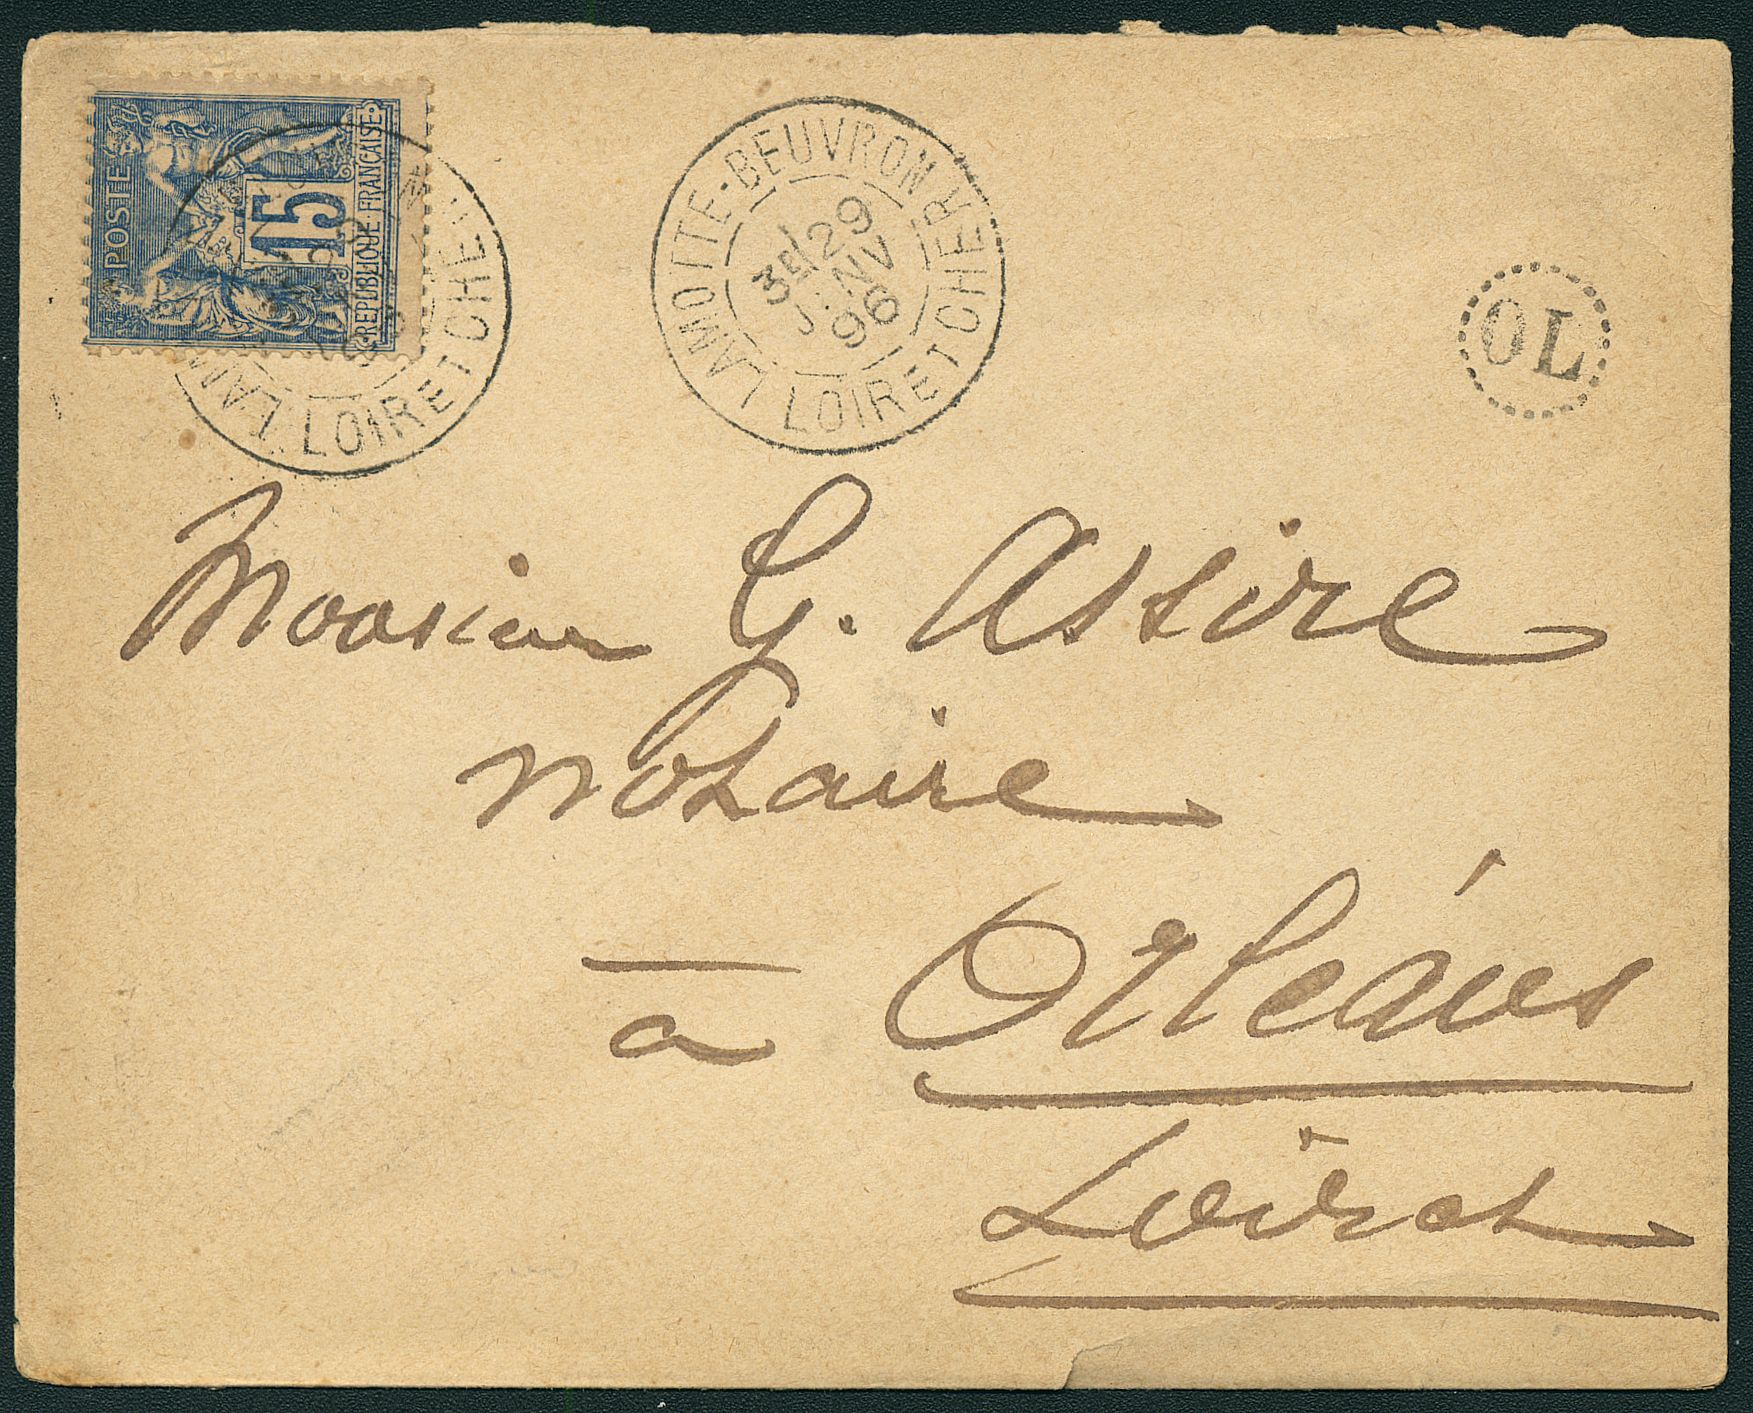 POSTE
15
REPUBLIQUE FRANÇAISE
LAM
LOIR ET CHER
LAMOTTE-BEUVRON
3E 29
JANV
96
LOIR ET CHER
OL
Monsieur G. Assire
notaire
à Orléans
Loiret